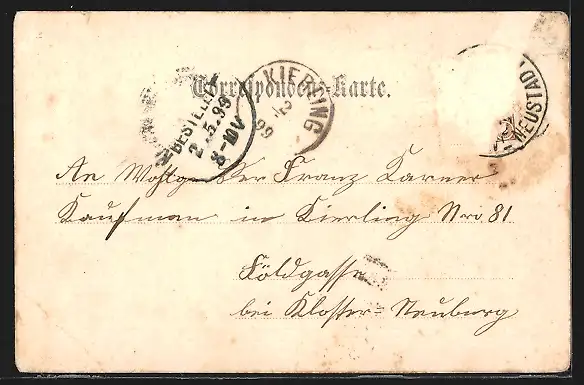 Correspondenz-Karte.
BESTELLT
2.5.99
8-10V
KIERLING
2 5
99
NEUSTADT
An Wohlg. Herr Franz Karner
Kaufman in Kierling Nro 81
Földgasse
bei Kloster-Neuburg